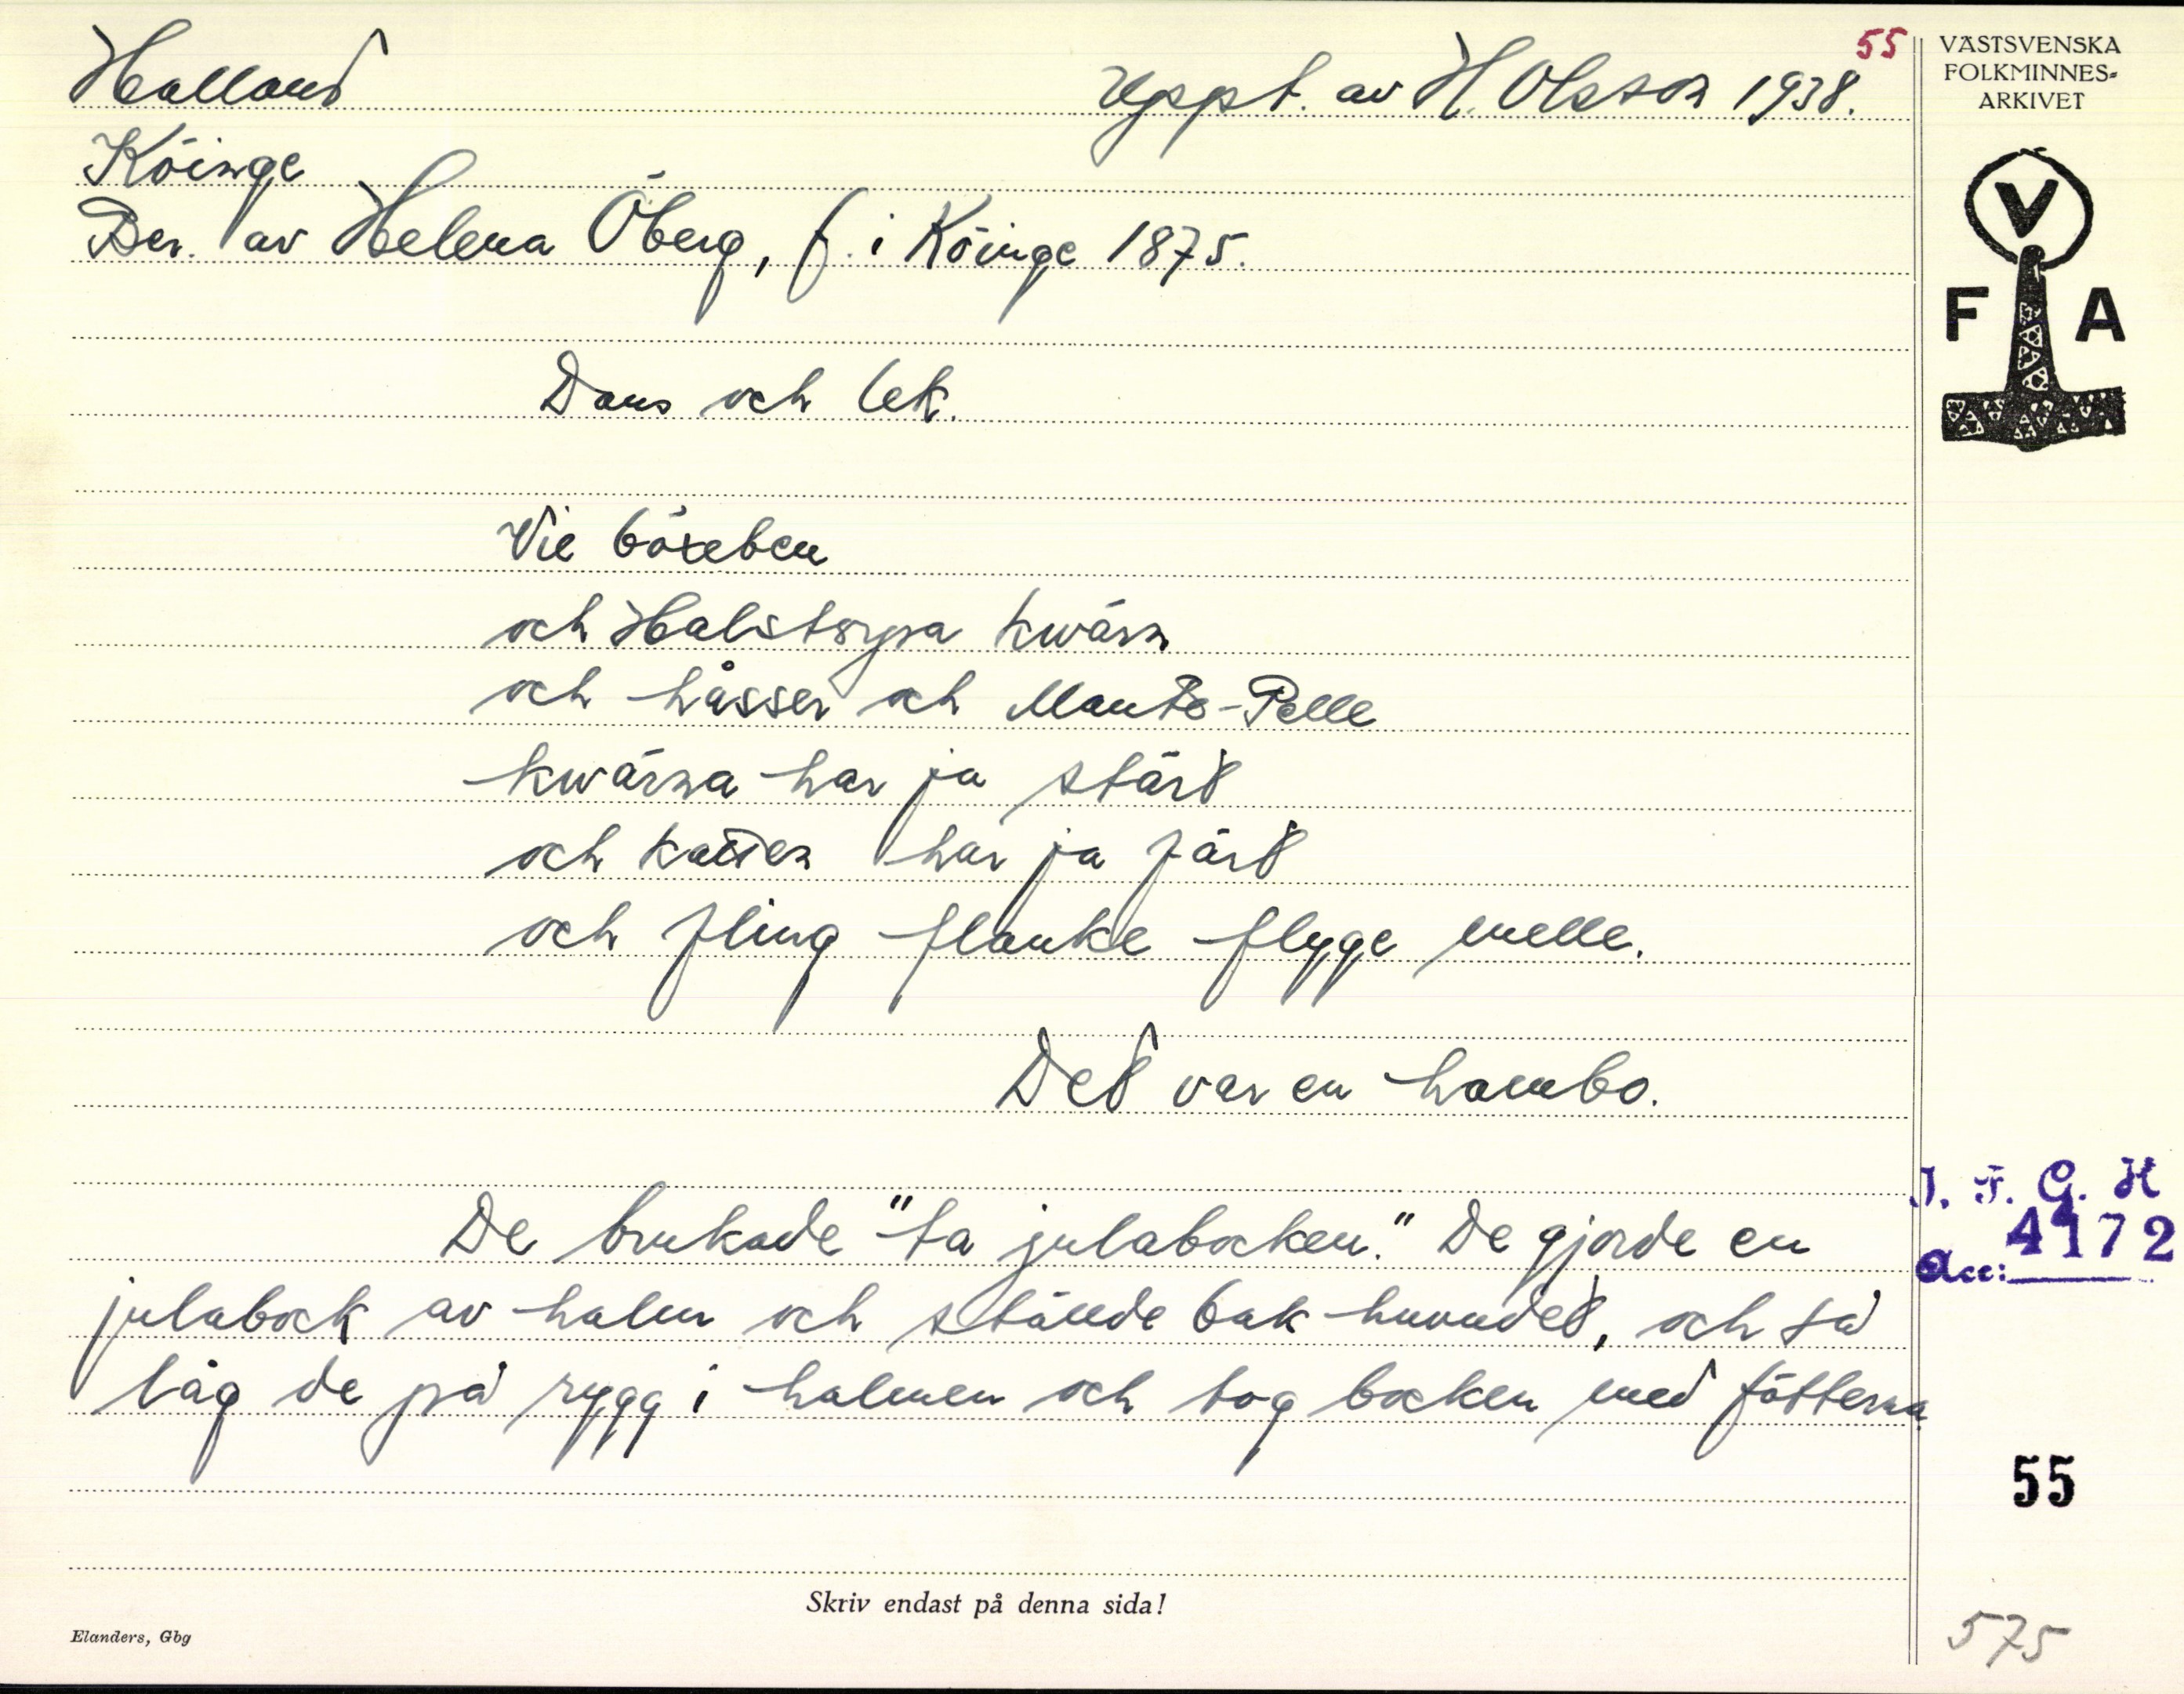 55
Halland
Uppt. av H. Olsson 1938.
Köinge
Ber. av Helena Öberg, f. i Köinge 1875.
Dans och lek.
Vie böxeben
och Halstorpa kwärn
och håsser och Mante-Pelle
kwärna har ja stärt
och katten har ja färt
och fling flanke flygge melle.
Det var en hambo.
De brukade "ta julabocken." De gjorde en
julabock av halm och ställde bak huvudet, och så
låg de på rygg i halmen och tog bocken med fötterna
Skriv endast på denna sida!
Elanders, Gbg
VÄSTSVENSKA
FOLKMINNES-
ARKIVET
V
F A
I. F. G. H
4172
Acc:
55
575